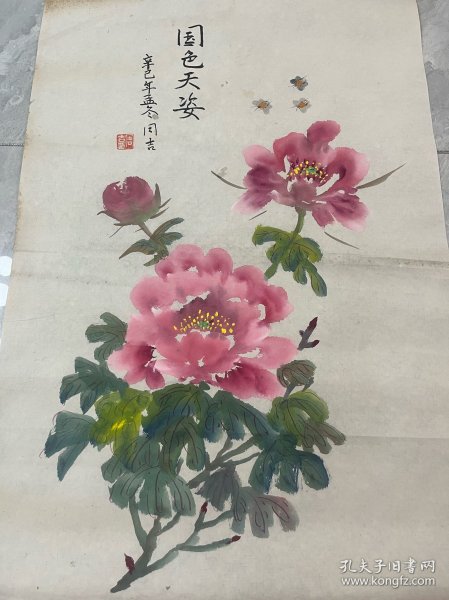 国色天姿
辛巳年孟冬同吉
孔夫子旧书网
www.kongfz.com